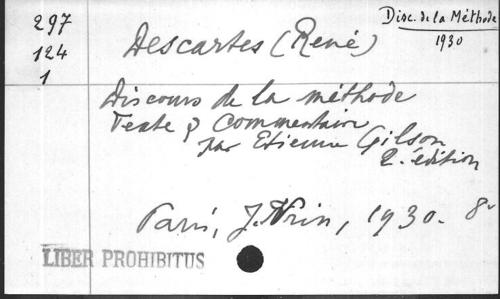 297
124
1
Disc. de la Méthode
1930
Descartes (René)
Discours de la méthode
Texte & Commentaire
par Etienne Gilson
2. édition
Paris, J. Vrin, 1930. 8°
LIBER PROHIBITUS